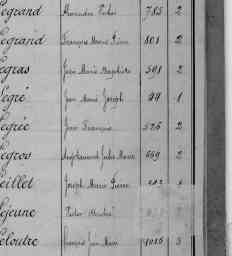 Legrand Alexandre Victor 785 2
Legrand François Marie Pierre 801 2
Legras Jean Marie Baptiste 591 2
Legré Jean Marie Joseph 99 1
Legrée Jean François 525 2
Legros Jules Marie 669 2
Leillet Joseph Marie Pierre
Lejeune Victor
Leloutre François Jean Marie 1015 3